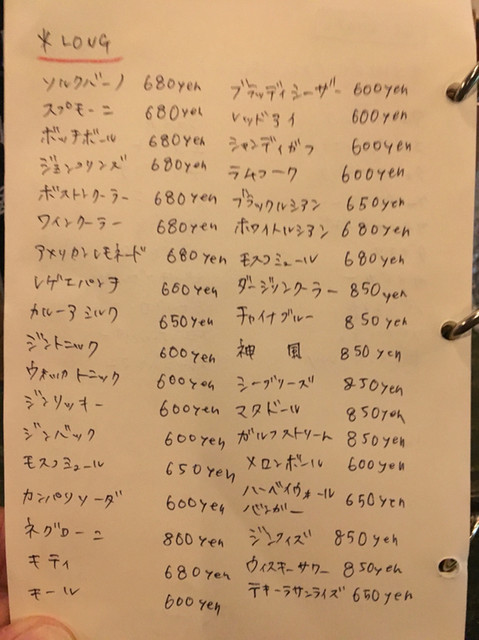 * LOUG
ソルクバーノ 680yen
スプモーニ 680yen
ボッチボール 680yen
ジョンコリンズ 680yen
ボストンクーラー 680yen
ワインクーラー 680yen
アメリカンレモネード 680yen
レゲエパンチ 600yen
カルーアミルク 650yen
ジントニック 600yen
ウォッカトニック 600yen
ジンリッキー 600yen
ジンバック 600yen
モスコミュール 650yen
カンパリソーダ 600yen
ネグローニ 800yen
キティ 680yen
モール 600yen
ブラッディシーザー 600yen
レッドアイ 600yen
シャンディガフ 600yen
ラムコーク 600yen
ブラックルシアン 650yen
ホワイトルシアン 680yen
モスコミュール 680yen
ダージリンクーラー 850yen
チャイナブルー 850yen
神風 850yen
シーブリーズ 850yen
マタドール 850yen
ガルフストリート 850yen
メロンボール 600yen
ハーベイウォール
バンガー 650yen
ジンフィズ 850yen
ウィスキーサワー 850yen
テキーラサンライズ 650yen